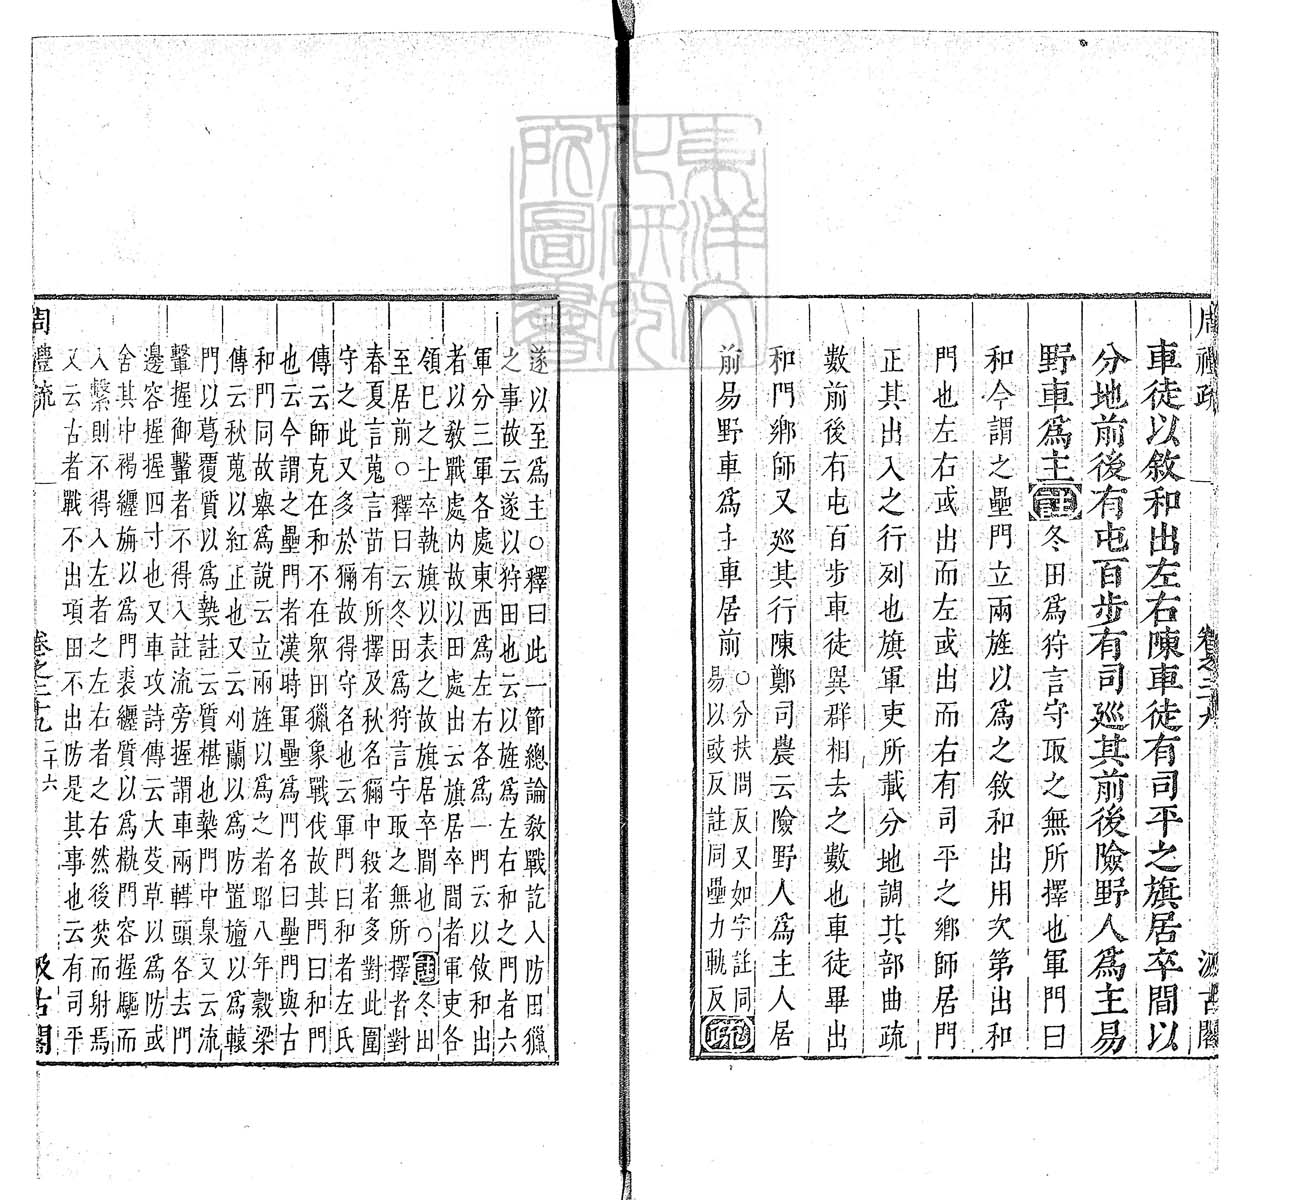 周禮疏
卷之二十九
汲古閣
車徒以敘和出左右陳車徒有司平之旗居卒間以
分地前後有屯百步有司巡其前後險野人爲主易
野車爲主註冬田爲狩言守取之無所擇也軍門曰
和今謂之壘門立兩旌以爲之敘和出用次第出和
門也左右或出而左或出而右有司平之鄉師居門
正其出入之行列也旗軍吏所載分地調其部曲疏
數前後有屯百步車徒異群相去之數也車徒畢出
和門鄉師又巡其行陳鄭司農云險野人爲主人居
前易野車爲主車居前
○分扶問反又如字註同
易以豉反註同壘力軌反
疏
遂以至爲主○釋曰此一節總論敎戰訖入防田獵
之事故云遂以狩田也云以旌爲左右和之門者六
軍分三軍各處東西爲左右各爲一門云以敘和出
者以敎戰處内故以田處出云旗居卒間者軍吏各
領巳之士卒執旗以表之故旗居卒間也○註冬田
至居前○釋曰云冬田爲狩言守取之無所擇者對
春夏言蒐言苗有所擇及秋名獮中殺者多對此圍
守之此又多於獮故得守名也云軍門曰和者左氏
傳云師克在和不在衆田獵象戰伐故其門曰和門
也云今謂之壘門者漢時軍壘爲門名曰壘門與古
和門同故舉爲說云立兩旌以爲之者昭八年穀梁
傳云秋蒐以紅正也又云刈蘭以爲防置旜以爲轅
門以葛覆質以爲槷註云質椹也槷門中臬又云流
轚握御轚者不得入註流旁握謂車兩轊頭各去門
邊容握握四寸也又車攻詩傳云大芟草以爲防或
舍其中褐纏旃以爲門裘纏質以爲槸門容握驅而
入轚則不得入左者之左右者之右然後焚而射焉
又云古者戰不出項田不出防是其事也云有司平
周禮疏
卷之二十九
二十六
汲古閣